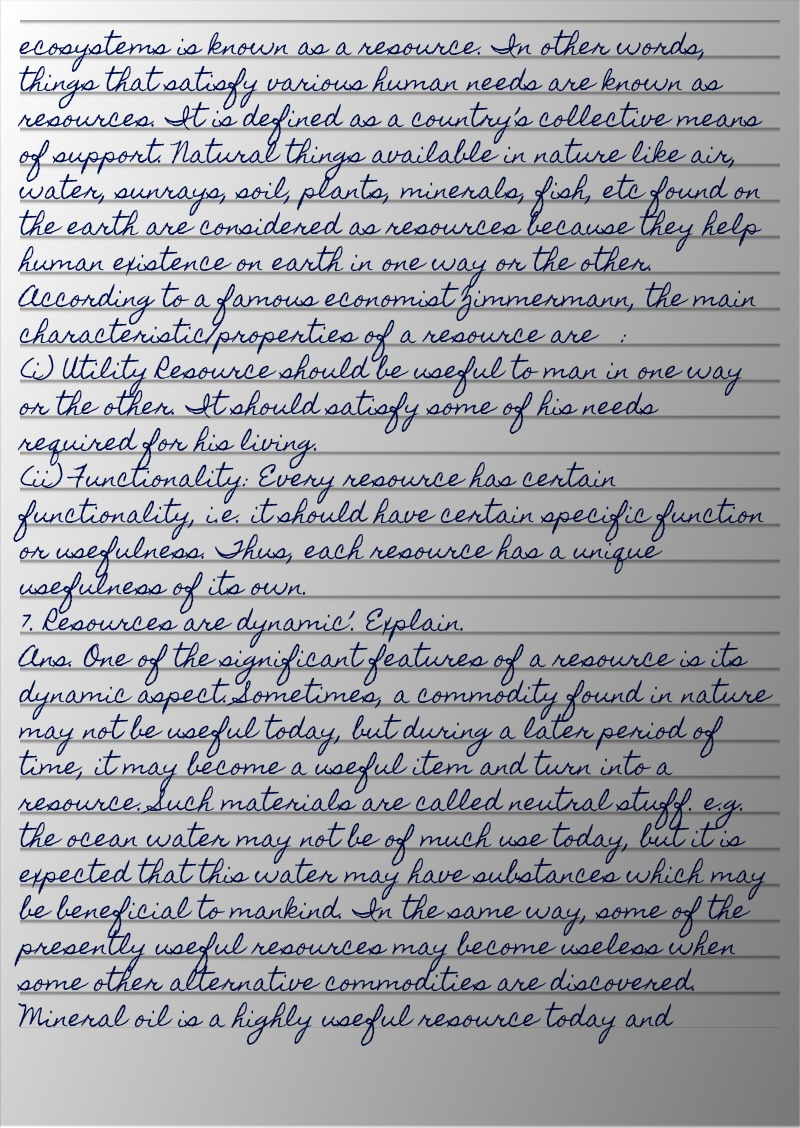 ecosystems is known as a resource. In other words,
things that satisfy various human needs are known as
resources. It is defined as a country's collective means
of support. Natural things available in nature like air,
water, sunrays, soil, plants, minerals, fish, etc found on
the earth are considered as resources because they help
human existence on earth in one way or the other.
According to a famous economist zimmermann, the main
characteristic/properties of a resource are :
(i) Utility Resource should be useful to man in one way
or the other. It should satisfy some of his needs
required for his living.
(ii) Functionality: Every resource has certain
functionality, i.e. it should have certain specific function
or usefulness. Thus, each resource has a unique
usefulness of its own.
7. Resources are dynamic'. Explain.
Ans. One of the significant features of a resource is its
dynamic aspect. Sometimes, a commodity found in nature
may not be useful today, but during a later period of
time, it may become a useful item and turn into a
resource. Such materials are called neutral stuff. e.g.
the ocean water may not be of much use today, but it is
expected that this water may have substances which may
be beneficial to mankind. In the same way, some of the
presently useful resources may become useless when
some other alternative commodities are discovered.
Mineral oil is a highly useful resource today and